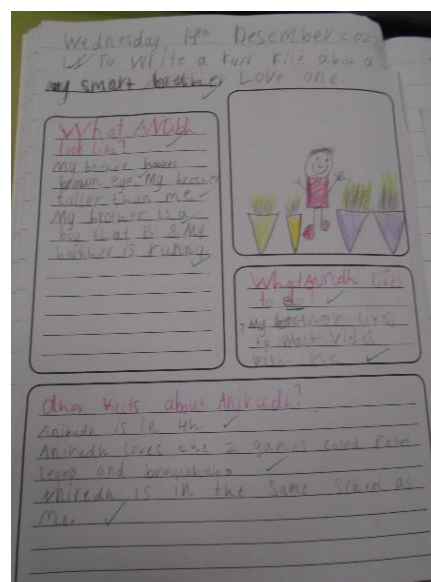 Wednesday 14th Desember 202
To Write a fact file about a
my smart brother Love one.
What ANUbh
look like?
My brother haves
brown eye. My brother
taller than me
My brother is a
boy that is 8 My
brother is funny
What Anirudh likes
to do?
My brother likes
to watch Vides
with me
Other facts about Anirudh?
Anirudh is in 4h.
Anirudh loves the 2 games caled
and
is in the same school as
me.